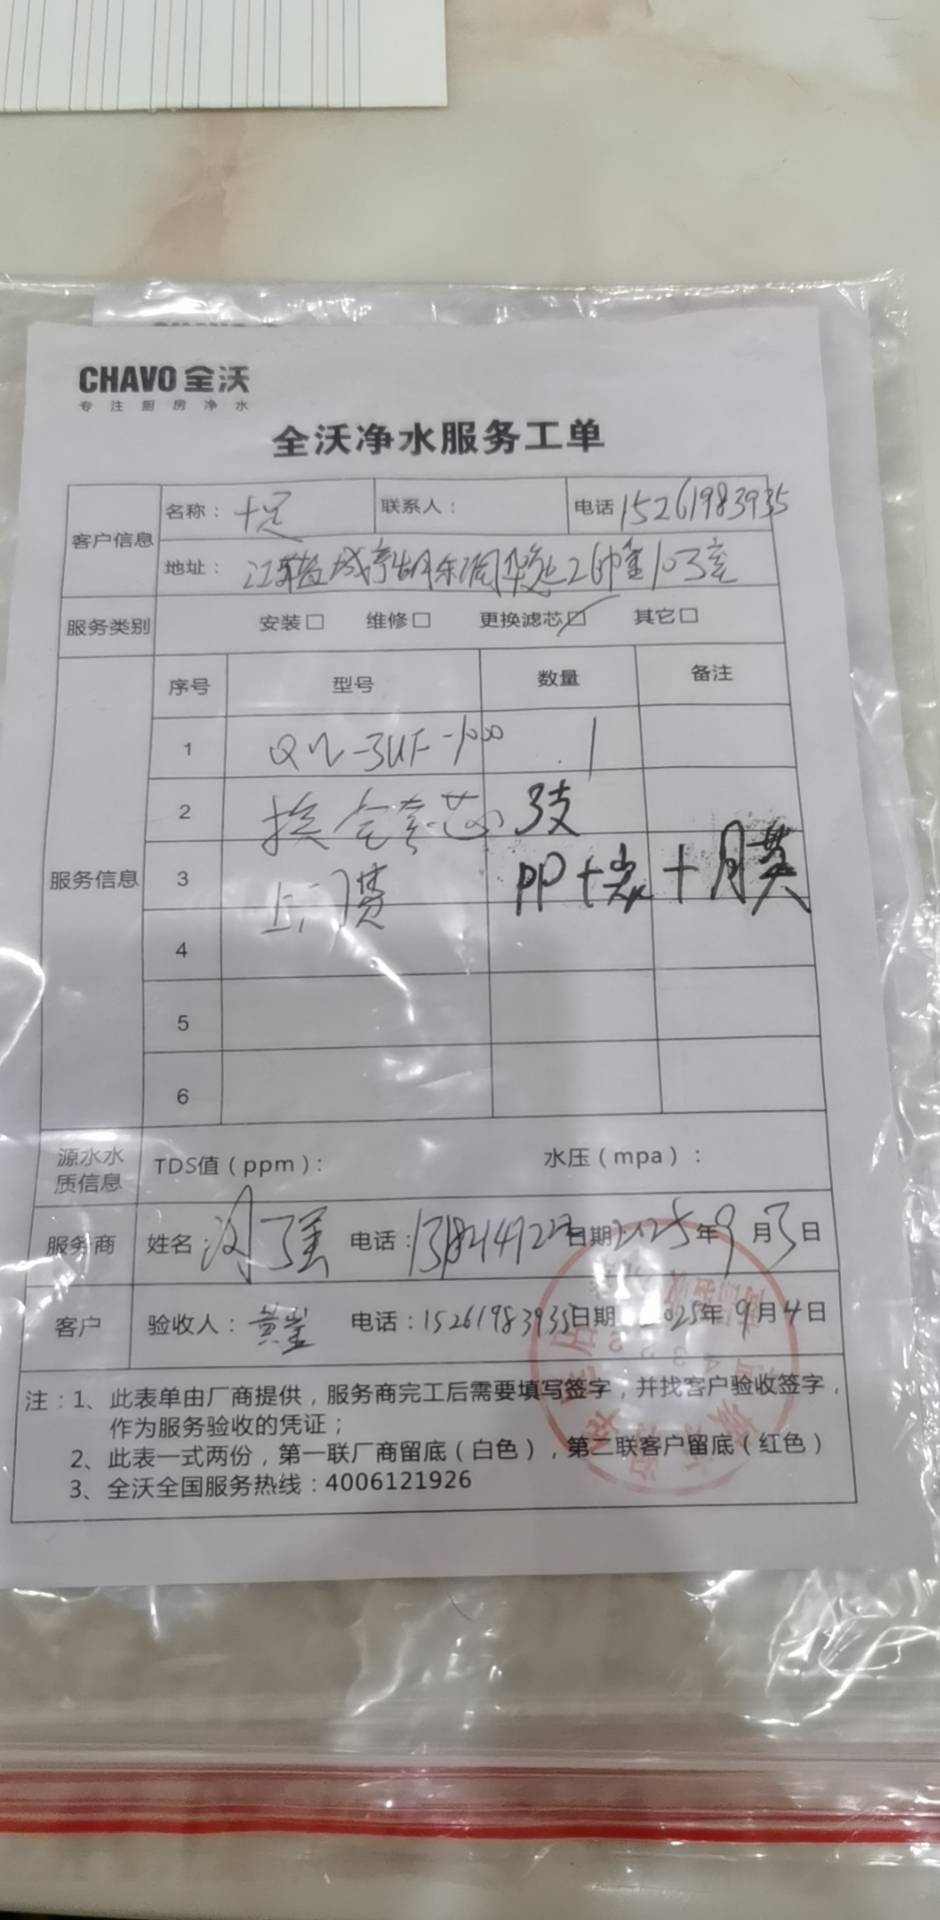 CHAVO 全沃
专注厨房净水
全沃净水服务工单
客户信息
名称： 十足 联系人： 电话 15261983935
地址： 江苏省 2幢103室
服务类别 安装□ 维修□ 更换滤芯☑ 其它□
服务信息
序号 型号 数量 备注
1 QW-3UF-1000 1
2 换全套芯 3支
3 上门费 PP+炭+膜
4
5
6
源水水质信息 TDS值（ppm）： 水压（mpa）：
服务商 姓名： 电话： 日期 2025年9月3日
客户 验收人： 电话：15261983935 日期 2025年9月4日
注：1、此表单由厂商提供，服务商完工后需要填写签字，并找客户验收签字，
作为服务验收的凭证；
2、此表一式两份，第一联厂商留底（白色），第二联客户留底（红色）
3、全沃全国服务热线：4006121926